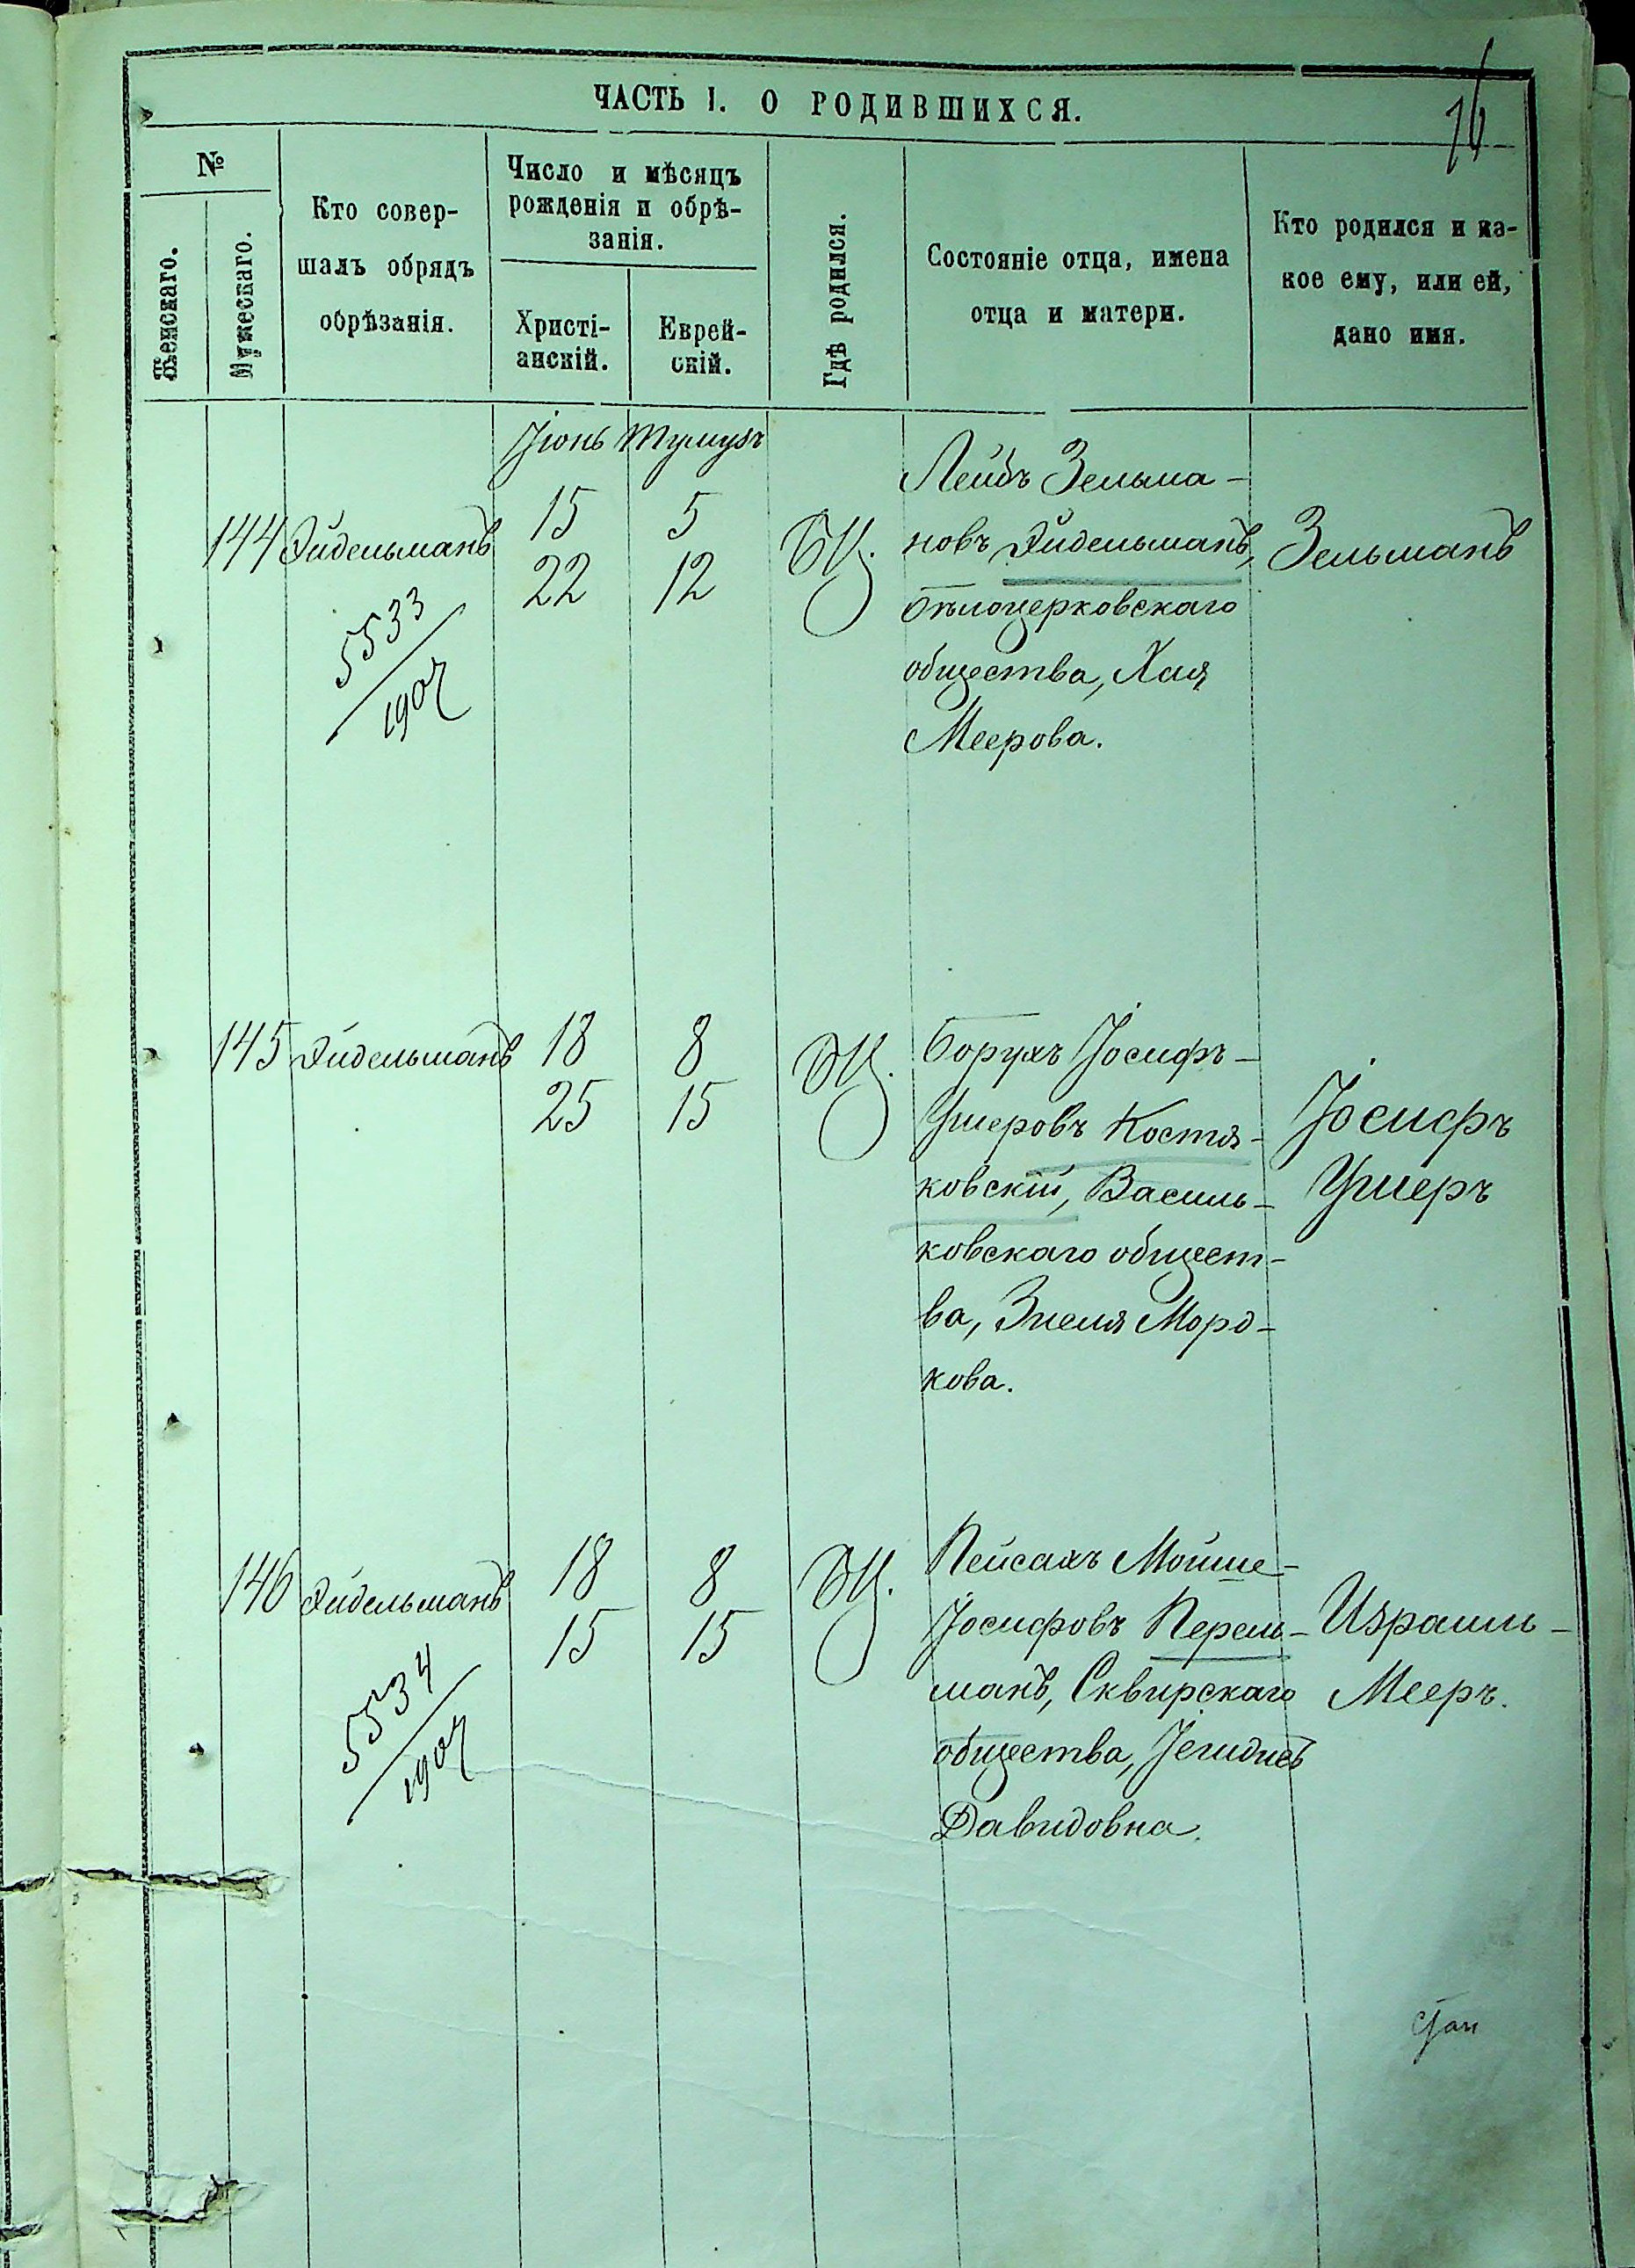 ЧАСТЬ I. О РОДИВШИХСЯ.
№
Женскаго.
Мужескаго.
Кто совер-
шалъ обрядъ
обрѣзанія.
Число и мѣсяцъ
рожденія и обрѣ-
занія.
Христі-
анскій.
Еврей-
скій.
Гдѣ родился.
Состояніе отца, имена
отца и матери.
Кто родился и ка-
кое ему, или ей,
дано имя.
Іюнь Тумузъ
144 Эйдельманъ
5533
1907
15 5
22 12
БЦ.
Лейбъ Зельма-
новъ Эйдельманъ,
бѣлоцерковскаго
общества, Хая
Меерова.
Зельманъ
145 Эйдельманъ
18 8
25 15
БЦ.
Борухъ Іосифъ-
Ушеровъ Костя-
ковскій, Василь-
ковскаго общест-
ва, Энеля Морд-
кова.
Іосифъ
Ушеръ
146 Эйдельманъ
5534
1907
18 8
15 15
БЦ.
Пейсахъ Мойше-
Іосифовъ Перель-
манъ, Сквирскаго
общества,
Давидовна.
Израиль-
Мееръ.